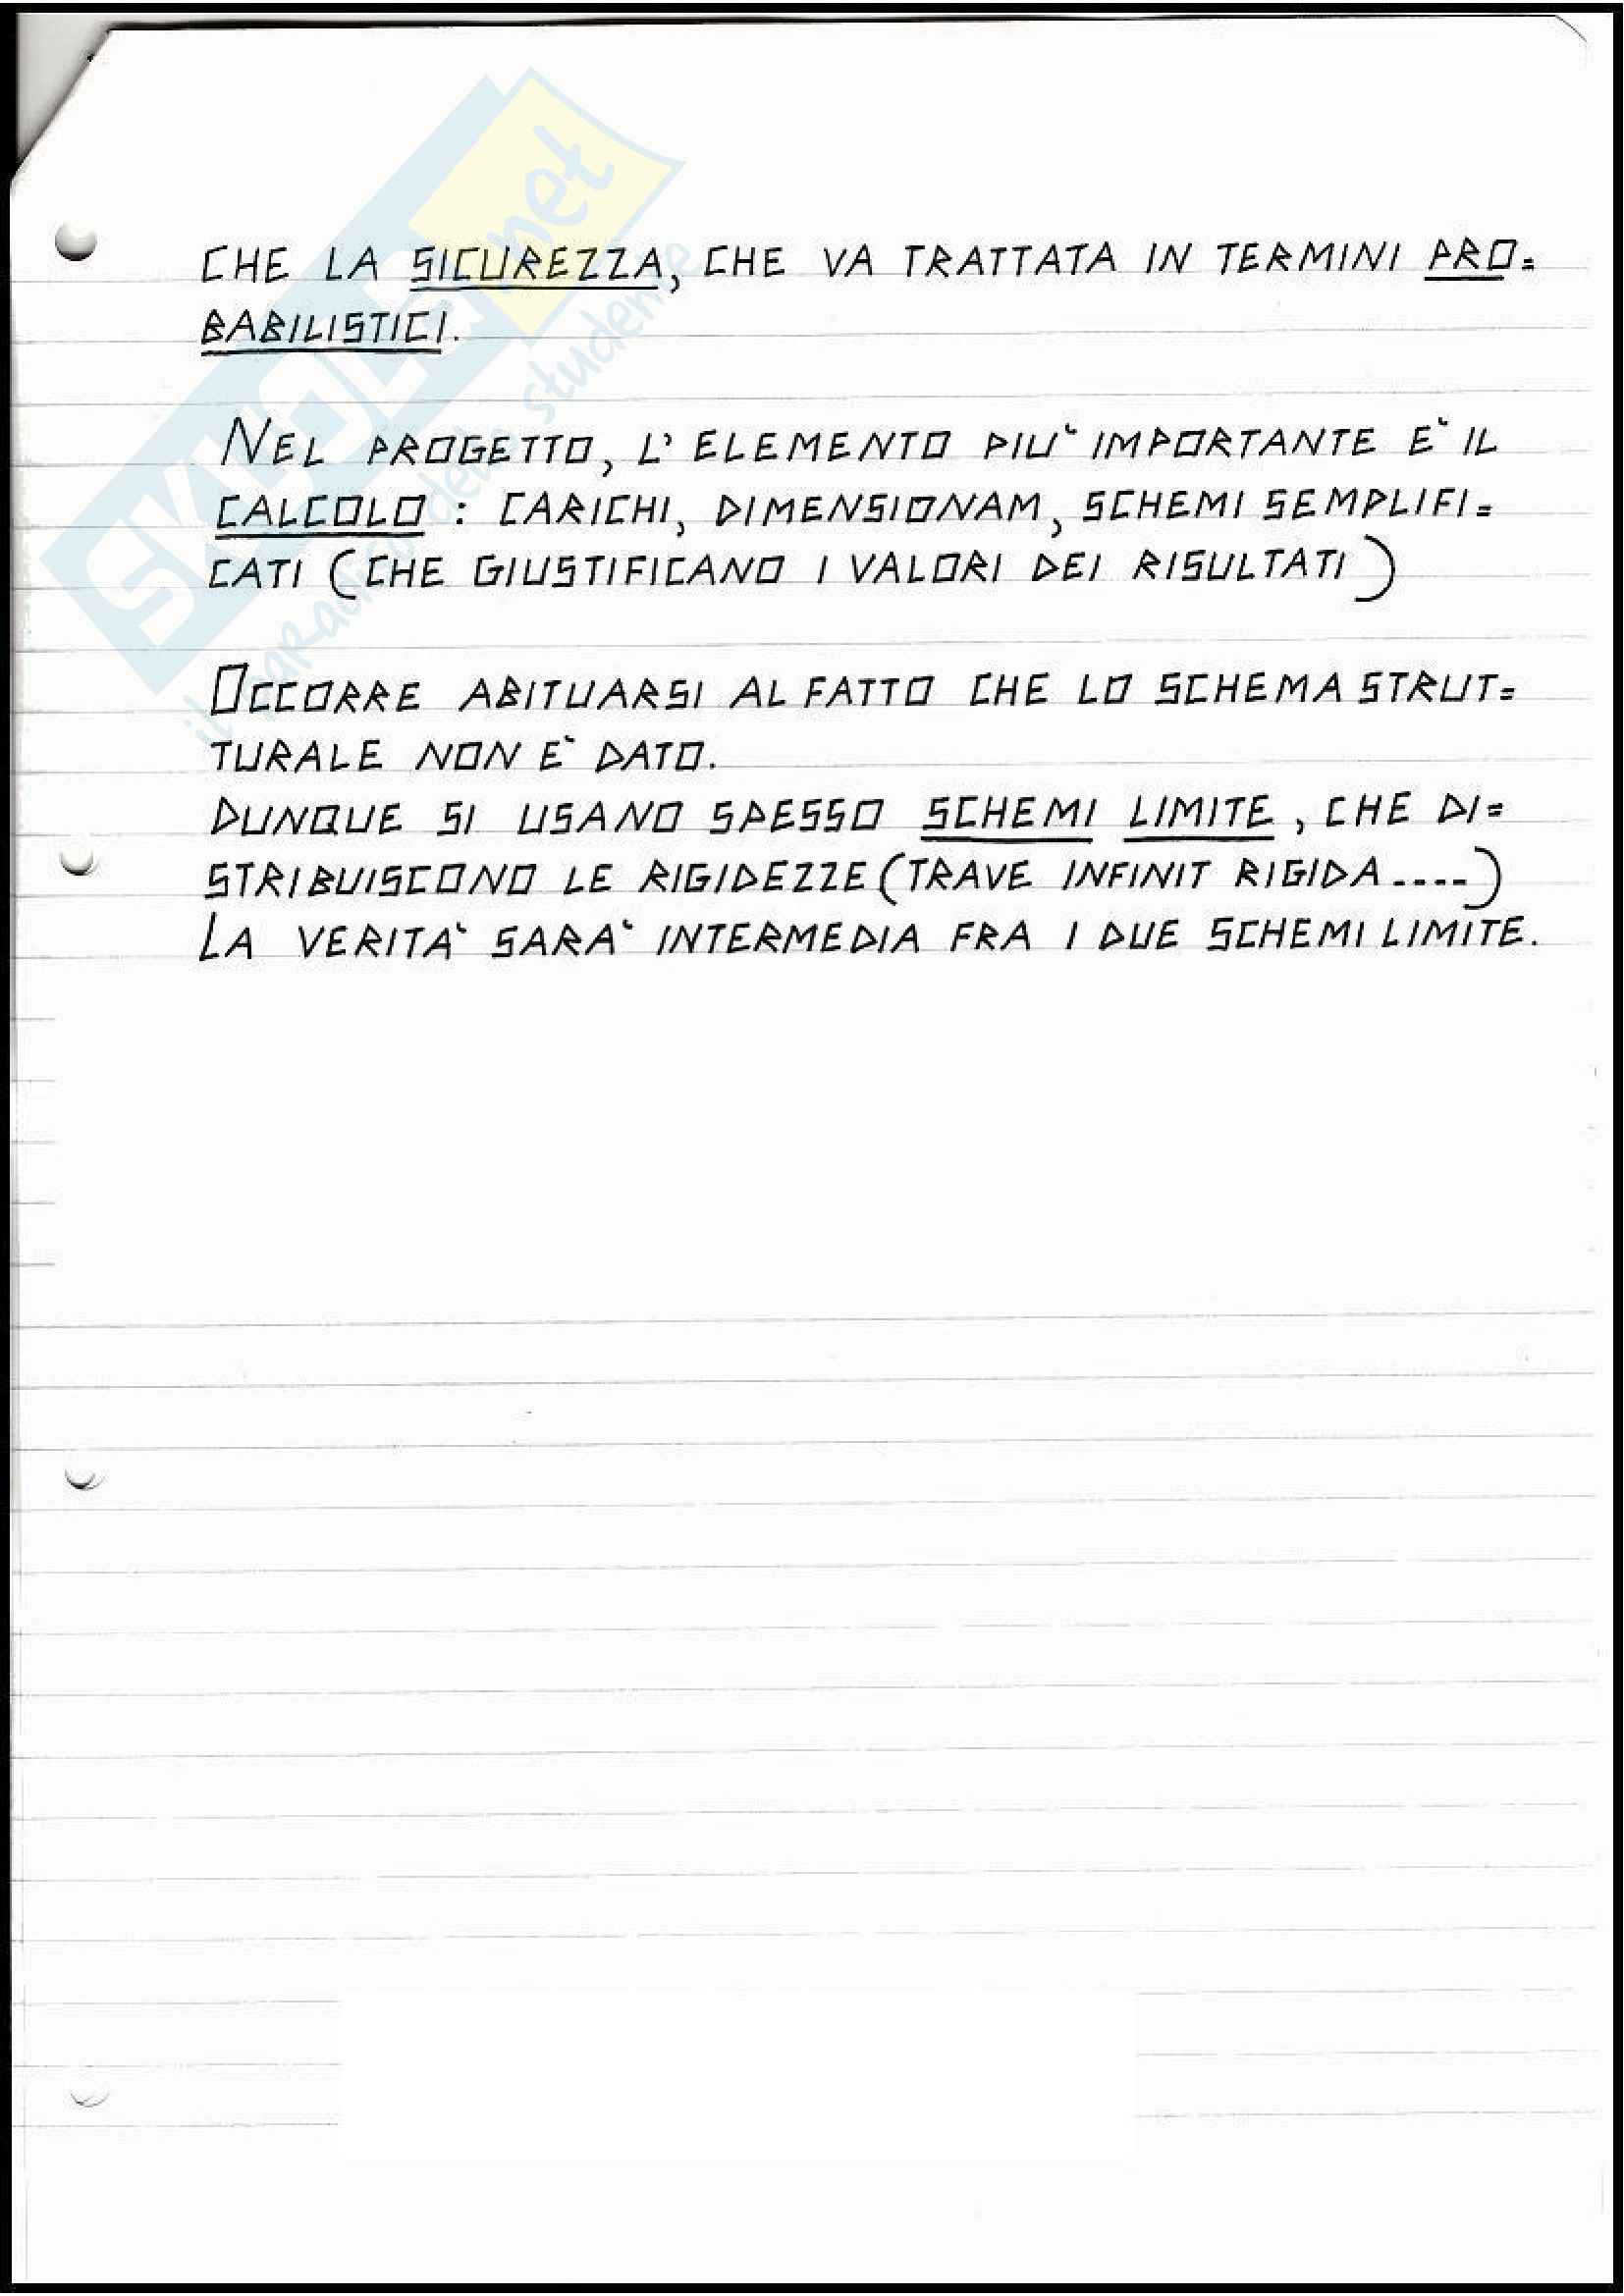 CHE LA SICUREZZA, CHE VA TRATTATA IN TERMINI PRO=
BABILISTICI.
NEL PROGETTO, L'ELEMENTO PIU' IMPORTANTE E' IL
CALCOLO : CARICHI, DIMENSIONAM, SCHEMI SEMPLIFI=
CATI (CHE GIUSTIFICANO I VALORI DEI RISULTATI)
OCCORRE ABITUARSI AL FATTO CHE LO SCHEMA STRUT=
TURALE NON E' DATO.
DUNQUE SI USANO SPESSO SCHEMI LIMITE, CHE DI=
STRIBUISCONO LE RIGIDEZZE (TRAVE INFINIT RIGIDA ----)
LA VERITA' SARA' INTERMEDIA FRA I DUE SCHEMI LIMITE.
SKUOLA.net
il paradiso dello studente